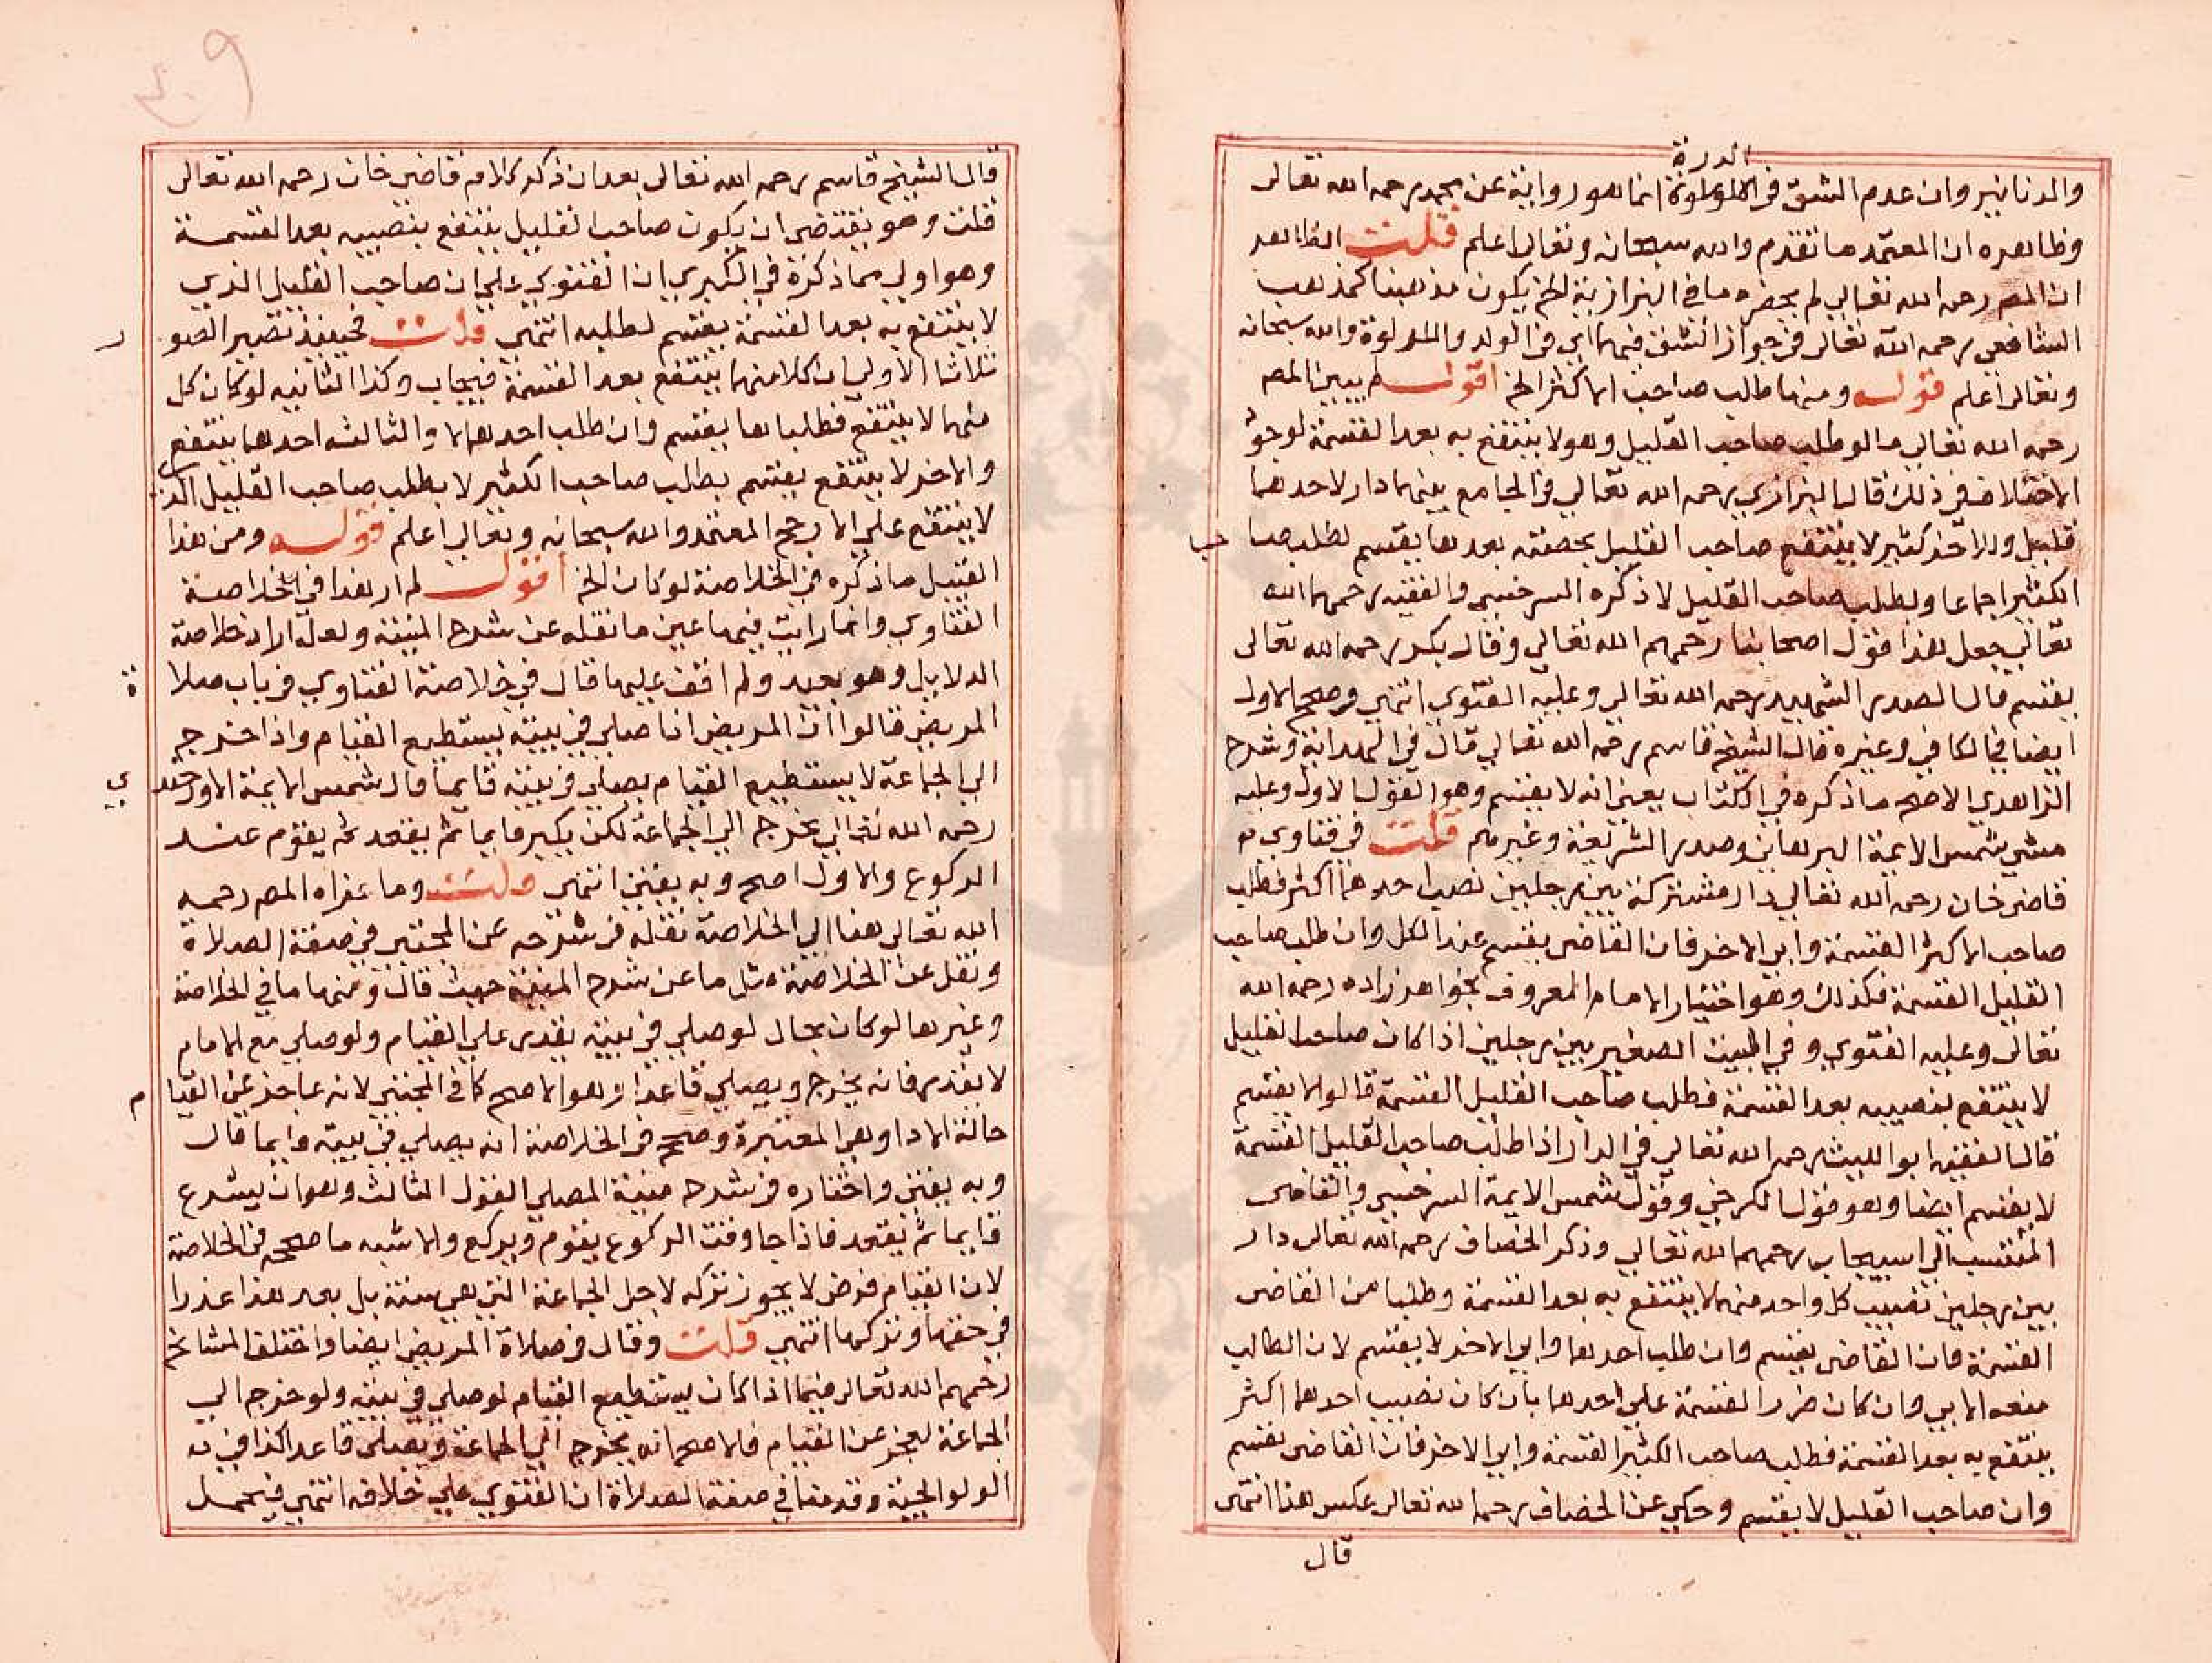 الدرة
والدنانير وان عدم الشق في اللولوة انما هو رواية عن محمد رحمه الله تعالى
وظاهره ان المعتمد ما تقدم والله سبحانه وتعالى اعلم قلت الظاهر
ان المص رحمه الله تعالى لم يحضره ما في البزازية الخ يكون مذهبنا كمذهب
الشافعي رحمه الله تعالى في جواز الشق فيهما اي في الولد والدرة والله سبحانه
وتعالى اعلم قوله ومنها طلب صاحب الاكثر الخ اقول لم يبين المص
رحمه الله تعالى ما لو طلب صاحب القليل وهو لا ينتفع به بعد القسمة لوجو
الاختلاف في ذلك قال البزازي رحمه الله تعالى في الجامع بينهما دار لاحدهما
قليل وللاخر كثير لا ينتفع صاحب القليل بحصته بعدها يقسم لطلب صا حب
الكثير اجماعا ولطلب صاحب القليل لا ذكره السرخسي والفقيه رحمهما الله
تعالى جعل هذا قول اصحابنا رحمهم الله تعالى وقال بكر رحمه الله تعالى
يقسم قال الصدر الشهيد رحمه الله تعالى وعليه الفتوى انتهى وصحح الاول
ايضا في الكافي وغيره قال الشيخ قاسم رحمه الله تعالى قال في الهداية وشرح
الزاهدي الاصح ما ذكره في الكتاب يعني انه لا يقسم وهو القول الاول وعليه
مشى شمس الايمة البرهاني وصدر الشريعة وغيرهم قلت في فتاوى
قاضي خان رحمه الله تعالى دار مشتركة بين رجلين نصيب احدهما اكثر فطلب
صاحب الاكثر القسمة وابى الاخر فان القاضي يقسم عند الكل وان طلب صاحب
القليل القسمة فكذلك وهو اختيار الامام المعروف بخواهر زاده رحمه الله
تعالى وعليه الفتوى وفي البيت الصغير بين رجلين اذا كان صاحب القليل
لا ينتفع بنصيبه بعد القسمة فطلب صاحب القليل القسمة قالوا لا يقسم
قال الفقيه ابو الليث رحمه الله تعالى في الدار اذا طلب صاحب القليل القسمة
لا يقسم ايضا وهو قول الكرخي وقول شمس الايمة السرخسي والقاضي
المنتسب الى اسبيجاب رحمهما الله تعالى وذكر الخصاف رحمه الله تعالى دار
بين رجلين نصيب كل واحد منهما لا ينتفع به بعد القسمة وطلبا من القاضي
القسمة فان القاضي يقسم وان طلب احدهما وابى الاخر لا يقسم لان الطالب
متعنت وان كان ضرر القسمة على احدهما بان كان نصيب احدهما اكثر
ينتفع به بعد القسمة فطلب صاحب الكثير القسمة وابى الاخر فان القاضي يقسم
وان صاحب القليل لا يقسم وحكي عن الخصاف رحمه الله تعالى عكس هذا انتهى
قال
قال الشيخ قاسم رحمه الله تعالى بعد ان ذكر كلامه قاضي خان رحمه الله تعالى
قلت وهو يقتضي ان يكون صاحب القليل ينتفع بنصيبه بعد القسمة
وهو اولى مما ذكره في الكبرى ان الفتوى على ان صاحب القليل الذي
لا ينتفع به بعد القسمة يقسم لطلبه انتهى قلت فحينئذ تصير الصو ر
ثلاثا الاولى ان كلا منهما ينتفع بعد القسمة فيجاب وكذا الثانيه لو كان كل
منهما لا ينتفع فطلباها يقسم وان طلب احدهما لا والثالثه احدهما ينتفع
والاخر لا ينتفع يقسم بطلب صاحب الكثير لا بطلب صاحب القليل الذي
لا ينتفع على الارجح المعتمد والله سبحانه وتعالى اعلم قوله ومن هذا
القبيل ما ذكره في الخلاصة لو كان الخ اقول لم ار هذا في خلاصة
الفتاوى وانما رايت فيها عين ما نقله عن شرح المنية ولعله اراد خلاصة
الدلايل وهو بعيد ولم اقف عليها قال في خلاصة الفتاوى في باب صلا ة
المريض قالوا ان المريض اذا صلى في بيته يستطيع القيام واذا خرج
الى الجماعة لا يستطيع القيام يصلي في بيته قايما قال شمس الايمة الاوزجند ي
رحمه الله تعالى يخرج الى الجماعة لكن يكبر قايما ثم يقعد ثم يقوم عند
الركوع والاول اصح وبه يفتى انتهى قلت وما عزاه المص رحمه
الله تعالى هنا الى الخلاصة نقله في شرحه عن المجتبى في صفة الصلاة
ونقل عن الخلاصة مثل ما عن شرح المنية حيث قال ومنها ما في الخلاصة
وغيرها لو كان بحال لو صلى في بيته يقدر على القيام ولو صلى مع الامام
لا يقدر فانه يخرج ويصلي قاعدا وهو الاصح كما في المجتبى لانه عاجز عن القيا م
حالة الاداء وهي المعتبرة وصحح في الخلاصة انه يصلي في بيته وايما قال
وبه يفتى واختاره في شرح منية المصلي القول الثالث وهو ان يشرع
قايما ثم يقعد فاذا جا وقت الركوع يقوم ويركع والاشبه ما صححه في الخلاصة
لان القيام فرض لا يجوز تركه لاجل الجماعة التي هي سنة بل يعد هذا عذرا
في حقها وتركها انتهى قلت وقال في صلاة المريض ايضا واختلف المشايخ
رحمهم الله تعالى فيما اذا كان يستطيع القيام لو صلى في بيته ولو خرج الى
الجماعة يعجز عن القيام فالاصح انه يخرج الى الجماعة ويصلي قاعدا كذا في
الولوالجية وقدمنا في صفة الصلاة ان الفتوى على خلافه انتهى فيحمل